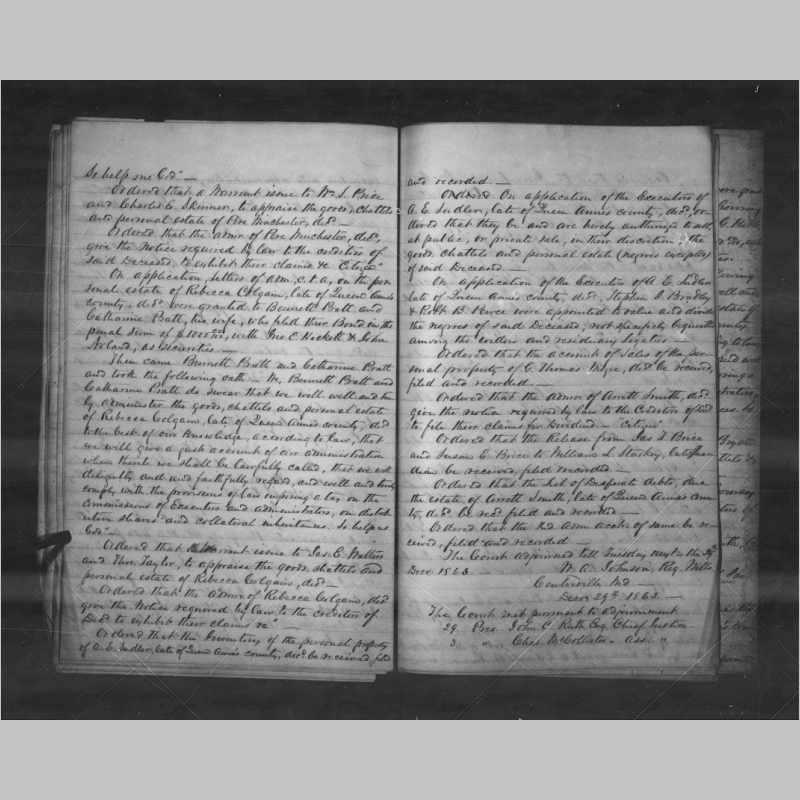 So help me God" —
Ordered that a Warrant issue to Wm. S. Price
and Charles C. Skinner, to appraise the goods, chattels
and personal estate of Pere Winchester, decd. —
Ordered that the admr of Pere Winchester, decd,
give the Notice required by law to the creditors of
said Deceased, to exhibit their claims &c
On application, letters of adm. c.t.a, on the per
sonal estate of Rebecca Colgain, late of Queen Anne's
county, decd were granted to Bennett Pratt and
Catharine Pratt, his wife, who filed their Bond in the
penal sum of with Jno. C. Hackett & John
as securities —
Then came Bennett Pratt and Catharine Pratt
and took the following oath — We, Bennett Pratt and
Catharine Pratt do swear that we will well and tru
ly administer the goods, chattels and personal estate
of Rebecca Colgain, late of Queen Annes county, decd
to the best of our knowledge, according to law, that
we will give a just account of our administration
when thereto we shall be lawfully called, that we will
diligently and faithfully regard, and well and truly
comply with the provisions of law imposing a tax on the
commissions of Executors and administrators, on distrib
utive shares and collateral inheritances. So help us
God" —
Ordered that a Warrant issue to Jas. E. Walters
and Thos. Taylor, to appraise the goods, chattels and
personal estate of Rebecca Colgain, decd —
Ordered that the Admr of Rebecca Colgain, decd
give the Notice required by law to the creditors of
Decd to exhibit their claims &c"
Ordered that the Inventory of the personal property
of A. E. Sudler, late of Queen Annes county, decd. be received, filed
and recorded —
Ordered On application of the Executors of
A. E. Sudler, late of Queen Annes county, decd, or
dered that they be and are hereby authorized to sell,
at public, or private sale, in their discretion, the
goods chattels and personal estate (negroes excepted)
of said Deceased —
On application of the Executors of A. E. Sudler
late of Queen Annes county, decd, Stephen J. Bradley
& Robt B. were appointed to value and divide
the negroes of said Deceased, not specifically bequeathed
among the widow and residuary legatees —
Ordered that the account of Sales of the per
sonal property of C. Thomas decd. be received,
filed and recorded —
Ordered that the Admor of Arrett Smith, decd.
give the notice required by law to the Creditors of decd
to file their claims for Dividend —
Ordered that the Release from Jas. T. Brice
and Susan E. Brice to William S. late Guar
dian be received, filed recorded —
Ordered that the list of Desperate debts, due
the estate of Arrett Smith, late of Queen Annes coun
ty, decd. be recd. filed and recorded —
Ordered that the 2nd Adm. acct of same be re
ceived, filed and recorded —
The Court adjourned till Tuesday next the 29th
Decr 1863 — W. A. Johnson, Reg. Wills
Centreville Md —
Decr 29th 1863 —
The Court met pursuant to adjournment
29. Pres. John C. Ruth Esq. Chief Justice
3 " Chas. McCollister — Asso "